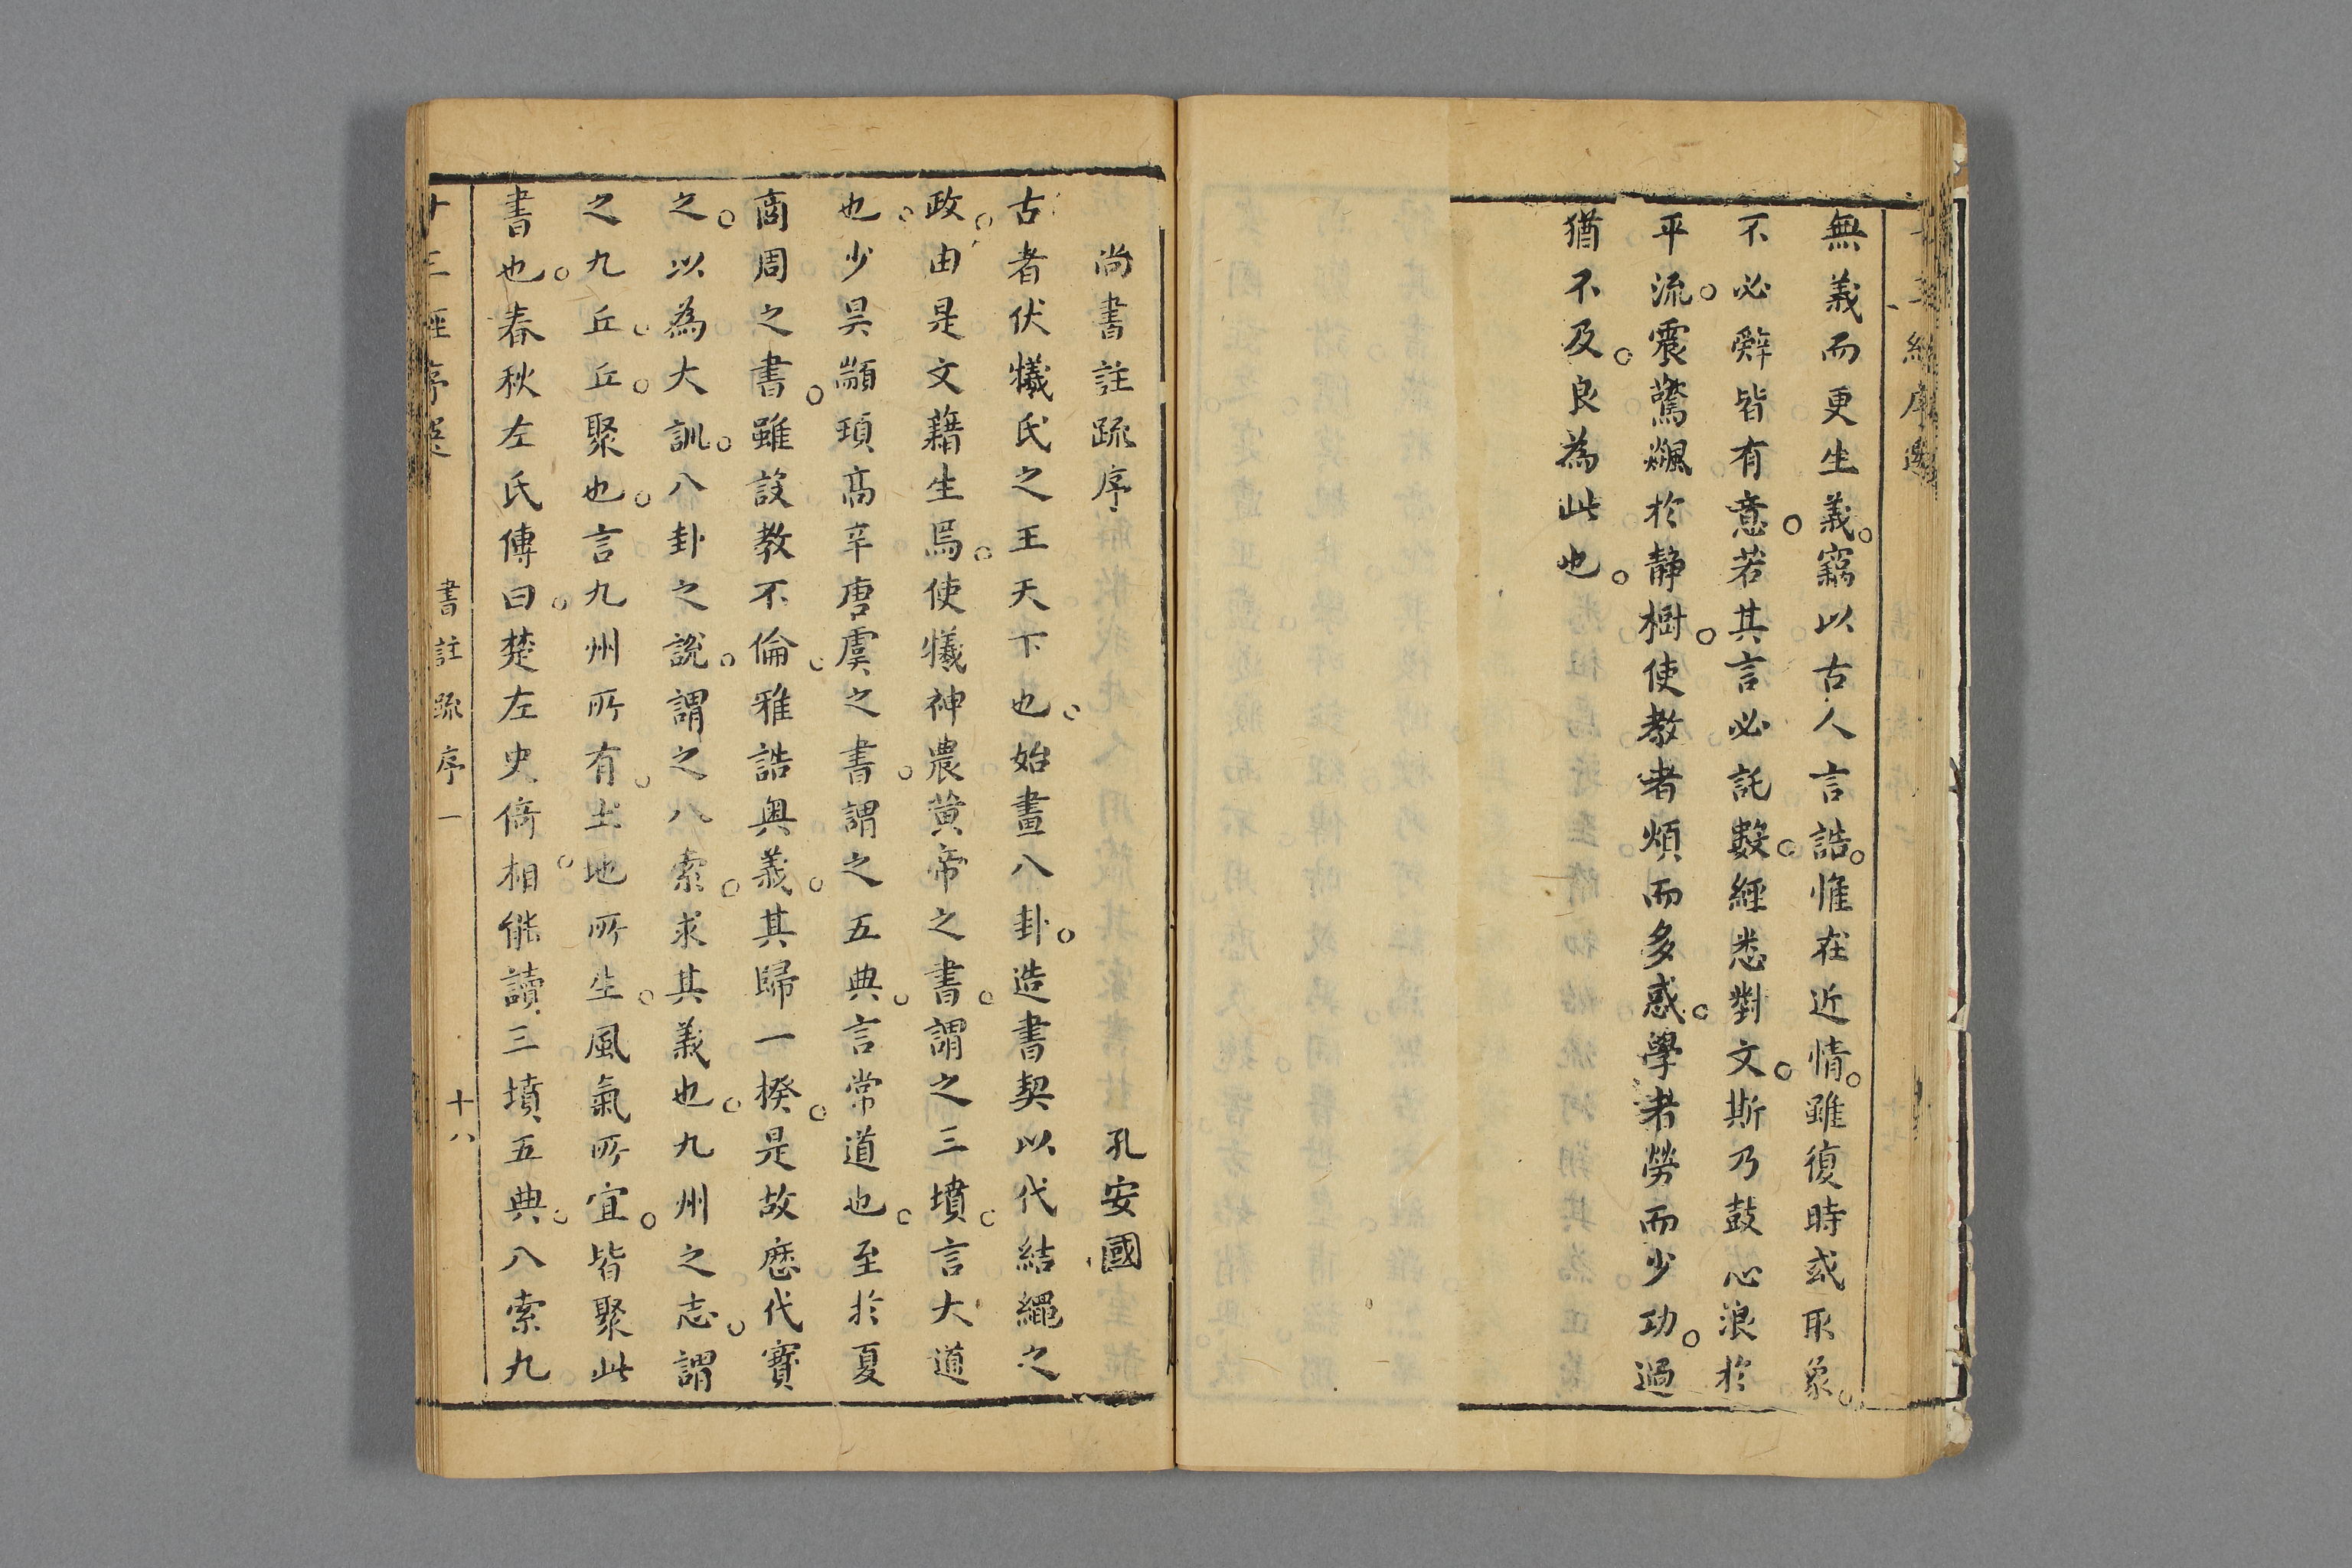 無義而更生義。竊以古人言誥。惟在近情。雖復時或取象。
不必辭皆有意。若其言必託數。經悉對文。斯乃鼓怒浪於
平流。震驚飈於靜樹。使教者煩而多惑。學者勞而少功。過
猶不及。良為此也。
尚書註疏序
孔安國
古者伏犧氏之王天下也。始畫八卦。造書契以代結繩之
政。由是文藉生焉。使犧神農黃帝之書。謂之三墳。言大道
也。少昊顓頊高辛唐虞之書。謂之五典。言常道也。至於夏
商周之書。雖設教不倫。雅誥奧義。其歸一揆。是故歷代寶
之。以為大訓。八卦之說。謂之八索。求其義也。九州之志。謂
之九丘。丘。聚也。言九州所有。土地所生。風氣所宜。皆聚此
書也。春秋左氏傳曰。楚左史倚相。能讀三墳五典。八索九
十三經序選
書註疏序一
十八